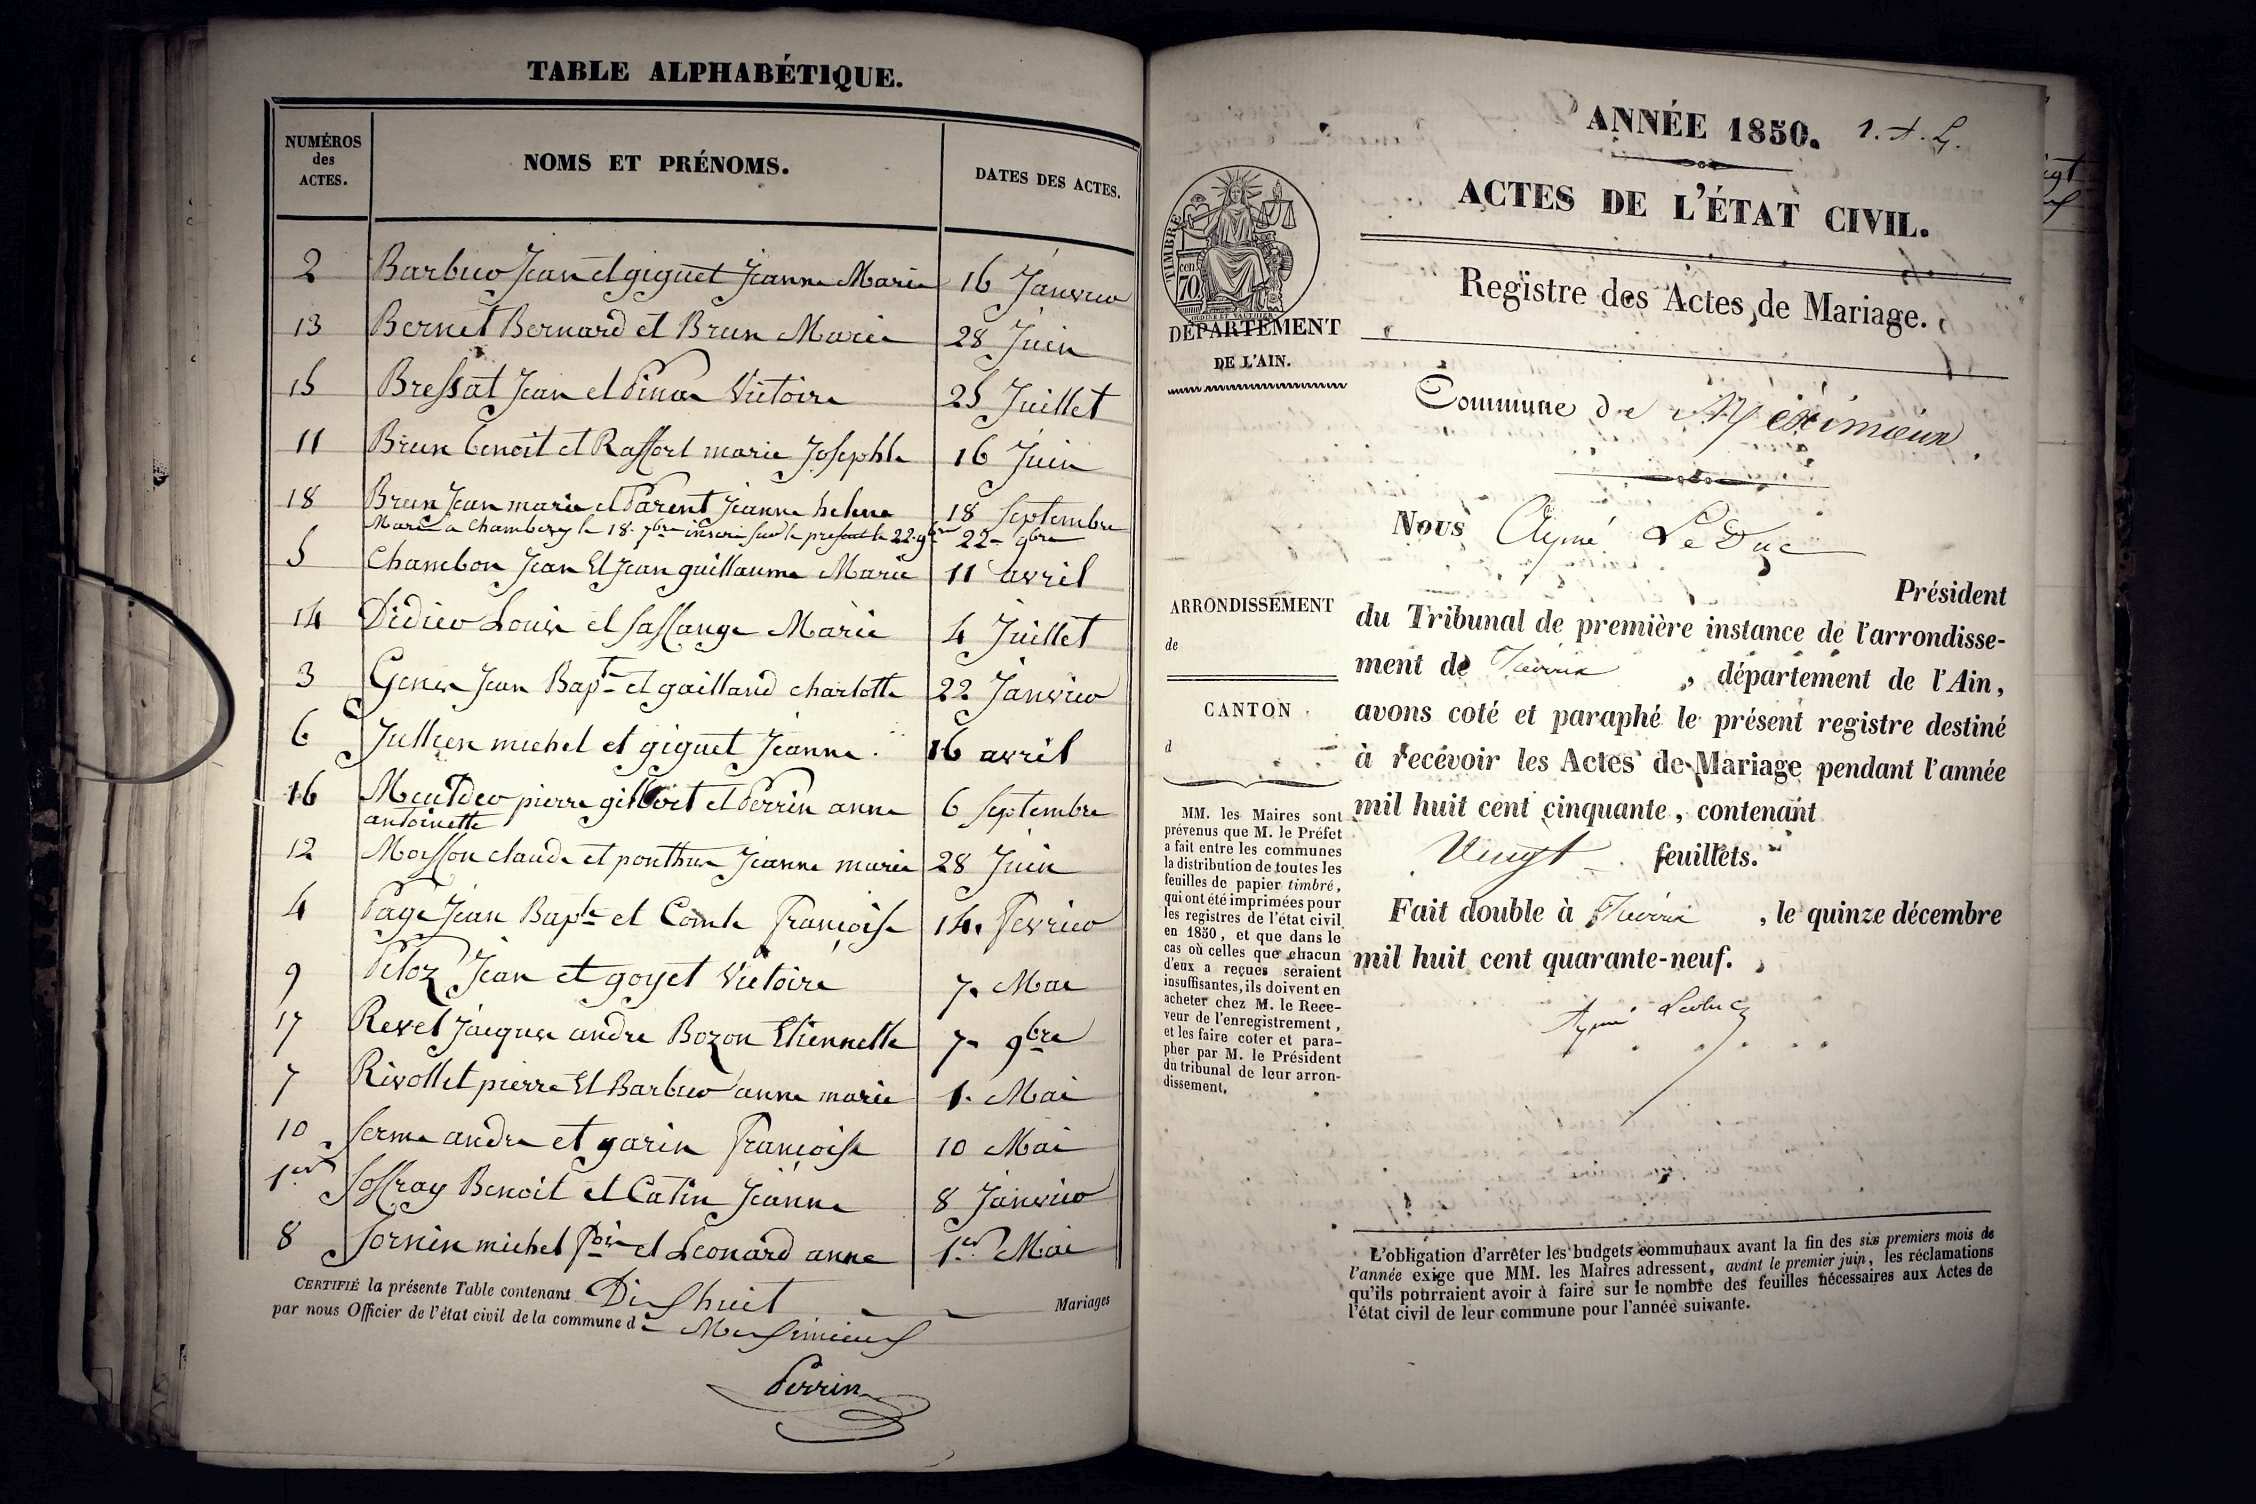 TABLE ALPHABÉTIQUE.
NUMÉROS des ACTES.
NOMS ET PRÉNOMS.
DATES DES ACTES.
2 Barbier Jean et giguet Jeanne Marie 16 Janvier
13 Bernet Bernard et Brun Marie 28 Juin
15 Bressat Jean et Victoire 25 Juillet
11 Brun Benoit et Raffort marie Josephte 16 Juin
18 Brun Jean marie et Parent Jeanne helene 18 Septembre
Marié a Chambery le 18. 7bre inscrit sur le present le 22. 9bre 22- 9bre
5 Chambon Jean Et Jean guillaume Marie 11 avril
14 Didier Louis et Marie 4 Juillet
3 Jean Bapte et gailland charlotte 22 Janvier
6 Jullien michel et giguet Jeanne. 16 avril
16 pierre gilbert et Perrin anne 6 Septembre
antoinette
12 Moisson claude et ponthus Jeanne marie 28 Juin
4 Page Jean Bapte et Comte Françoise 14. Fevrier
9 Peloz Jean et goyet Victoire 7. Mai
17 Revel Jacques andre Bozon Etiennette 7- 9bre
7 Rivollet pierre Et Barbier anne marie 1. Mai
10 Serme andre et garin Françoise 10 Mai
1er Benoit et Catin Jeanne 8 Janvier
8 michel et Leonard anne 1er Mai
CERTIFIÉ la présente Table contenant Dix huit Mariages
par nous Officier de l'état civil de la commune de Meximieux
Perrin
ANNÉE 1850. 1.
ACTES DE L'ÉTAT CIVIL.
TIMBRE
cen 70
DÉPARTEMENT
DE L'AIN.
Registre des Actes de Mariage.
Commune de Meximieux
Nous Aymé Le Duc
Président
du Tribunal de première instance de l'arrondisse-
ment de Trévoux, département de l'Ain,
avons coté et paraphé le présent registre destiné
à recevoir les Actes de Mariage pendant l'année
mil huit cent cinquante, contenant
Vingt feuillets.
Fait double à Trévoux, le quinze décembre
mil huit cent quarante-neuf.
Aymé Leduc
ARRONDISSEMENT
de
CANTON
d
MM. les Maires sont
prévenus que M. le Préfet
a fait entre les communes
la distribution de toutes les
feuilles de papier timbré,
qui ont été imprimées pour
les registres de l'état civil
en 1850, et que dans le
cas où celles que chacun
d'eux a reçues seraient
insuffisantes, ils doivent en
acheter chez M. le Rece-
veur de l'enregistrement,
et les faire coter et para-
pher par M. le Président
du tribunal de leur arron-
dissement.
L'obligation d'arrêter les budgets communaux avant la fin des six premiers mois de
l'année exige que MM. les Maires adressent, avant le premier juin, les réclamations
qu'ils pourraient avoir à faire sur le nombre des feuilles nécessaires aux Actes de
l'état civil de leur commune pour l'année suivante.